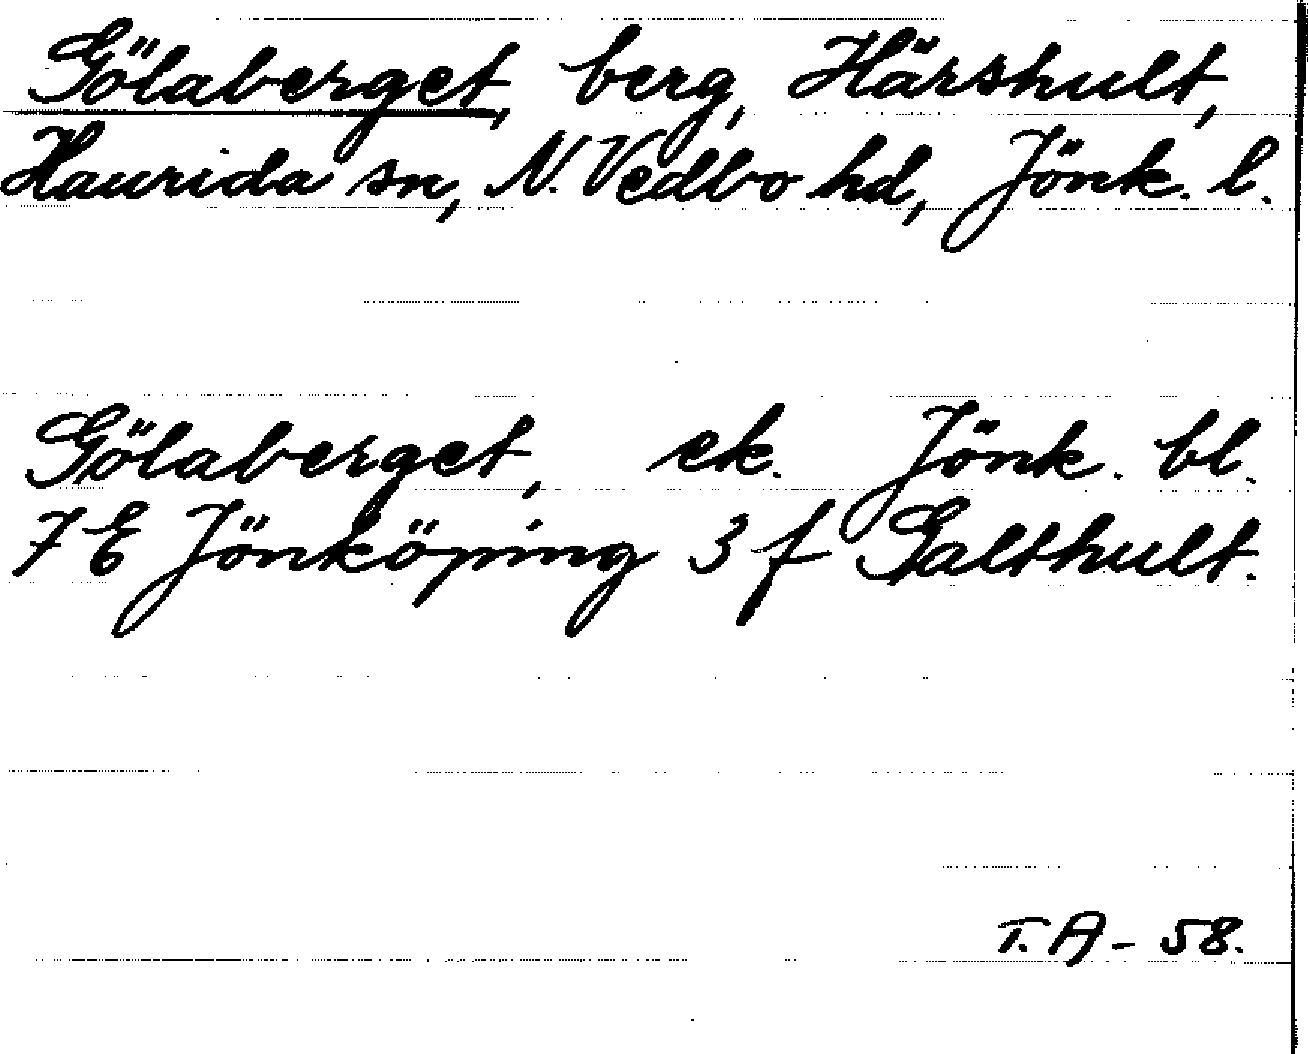 Gölaberget, berg, Härshult,
Haurida sn, N. Vedbo hd, Jönk. l.
Gölaberget, ek. Jönk. bl.
7 E Jönköping 3 f Galthult.
T. A - 58.